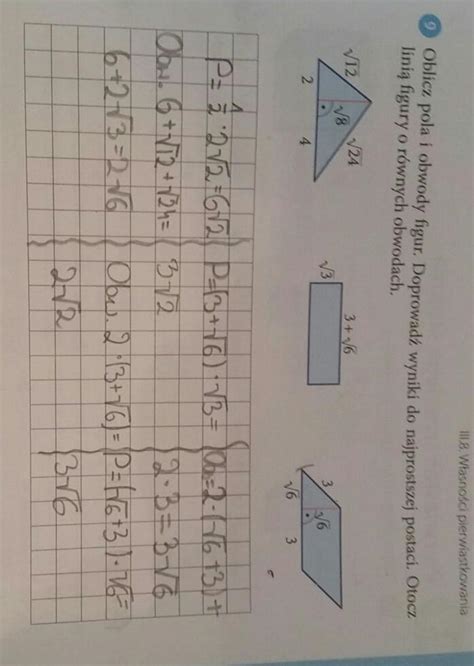 III.8. Własności pierwiastkowania
9 Oblicz pola i obwody figur. Doprowadź wyniki do najprostszej postaci. Otocz
linią figury o równych obwodach.
√12 √8 √24
2 4
3 + √6
√3
3 √6
√6 3
P = 1/2 · 2√2 = 6√2
Obw. 6 + √12 + √24 =
6 + 2√3 = 2√6
P = (3 + √6) · √3 =
3√2
Obw. 2 · (3 + √6) =
2√2
Ob = 2 · (√6 + 3) +
2 · 3 = 3√6
P = (√6 + 3) · √6 =
3√6